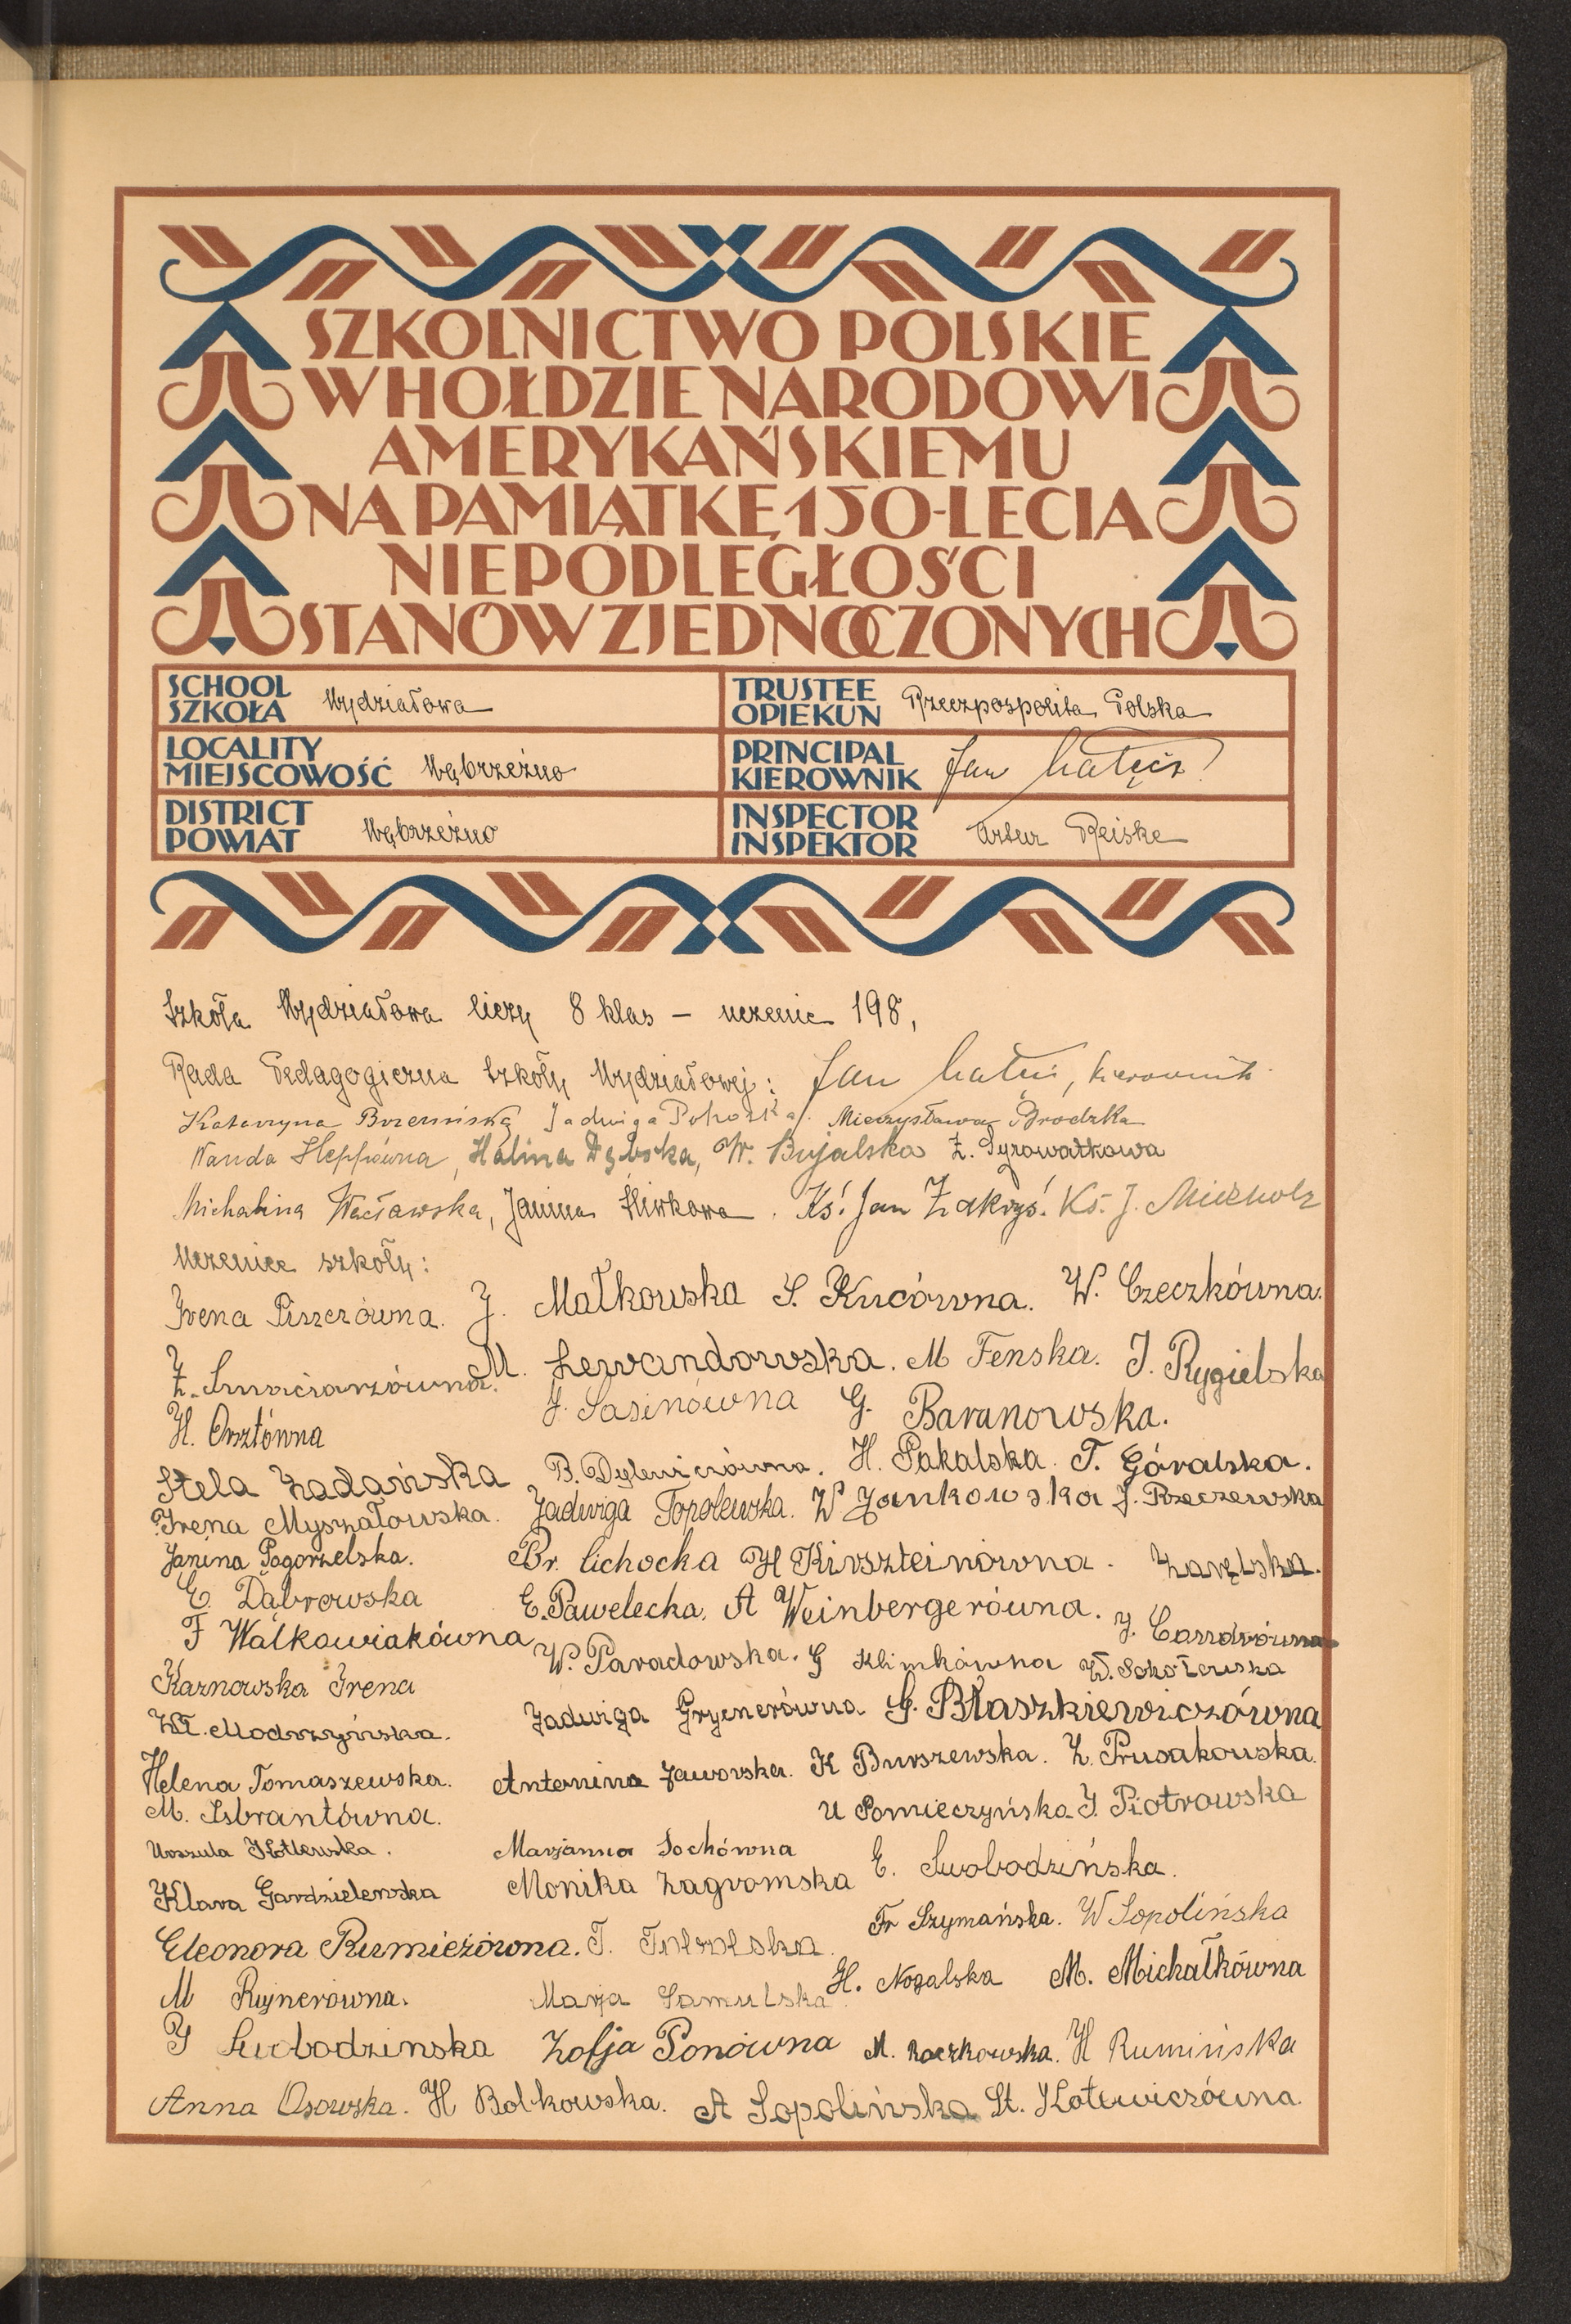 SZKOLNICTWO POLSKIE
W HOŁDZIE NARODOWI
AMERYKAŃSKIEMU
NA PAMIĄTKĘ 150-LECIA
NIEPODLEGŁOŚCI
STANÓW ZJEDNOCZONYCH
SCHOOL SZKOŁA Wydziałowa
TRUSTEE OPIEKUN Rzeczpospolita Polska
LOCALITY MIEJSCOWOŚĆ Wąbrzeźno
PRINCIPAL KIEROWNIK Jan
DISTRICT POWIAT Wąbrzeźno
INSPECTOR INSPEKTOR Artur Reiske
Szkoła Wydziałowa liczy 8 klas – uczenic 198,
Rada Pedagogiczna Szkoły Wydziałowej: Jan kierownik
Katarzyna Brzemiska, Jadwiga Mieczysława Brodzka
Wanda Heppówna, Halina Dębska, W. Bujalska Z. Syrowatkowa
Michalina Wacławska, Janina Śliwkowa. Ks. Jan Zakryś. Ks. J.
Uczenice szkoły:
Irena Piszczówna. J. Małkowska S. Kucówna. W. Czeczkówna.
Z. M. Lewandowska. M Fenska. J. Rygielska
H. Orsztówna J. Sasinówna G. Baranowska.
Stela Zadańska B. Dylewiczówna. H. Pakalska. T. Góralska.
Irena Myszałowska. Jadwiga Topolewska. W Jankowska J. Rzeczewska
Janina Pogorzelska. Br. Cichocka H Kirszteinówna. Zarębska.
E. Dąbrowska E. Pawelecka. A Weinbergerówna. J.
F Walkowiakówna W. Paradowska. G Klimkówna W. Sokołowska
Karnowska Irena Jadwiga Grynerówna G. Błaszkiewiczówna
Wł. Modrzyńska.
Helena Tomaszewska. Antonina Jaworska. K Burszewska. Z. Prusakowska.
M. Isbrantówna. U Pomieczyńska J. Piotrowska
Urszula Kotlewska. Marjanna Sochówna E. Swobodzińska.
Klara Gardzielewska Monika Zagromska
Fr Szymańska. W Sopolińska
Eleonora Rumieżówna. T.
M Rujnerówna. Marja Samulska H. Nogalska M. Michałkówna
J Swobodzinska Zofja Ponówna M. Raczkowska. H Rumińska
Anna Osowska. H Bolkowska. A Sopolińska St. Kotewiczówna.